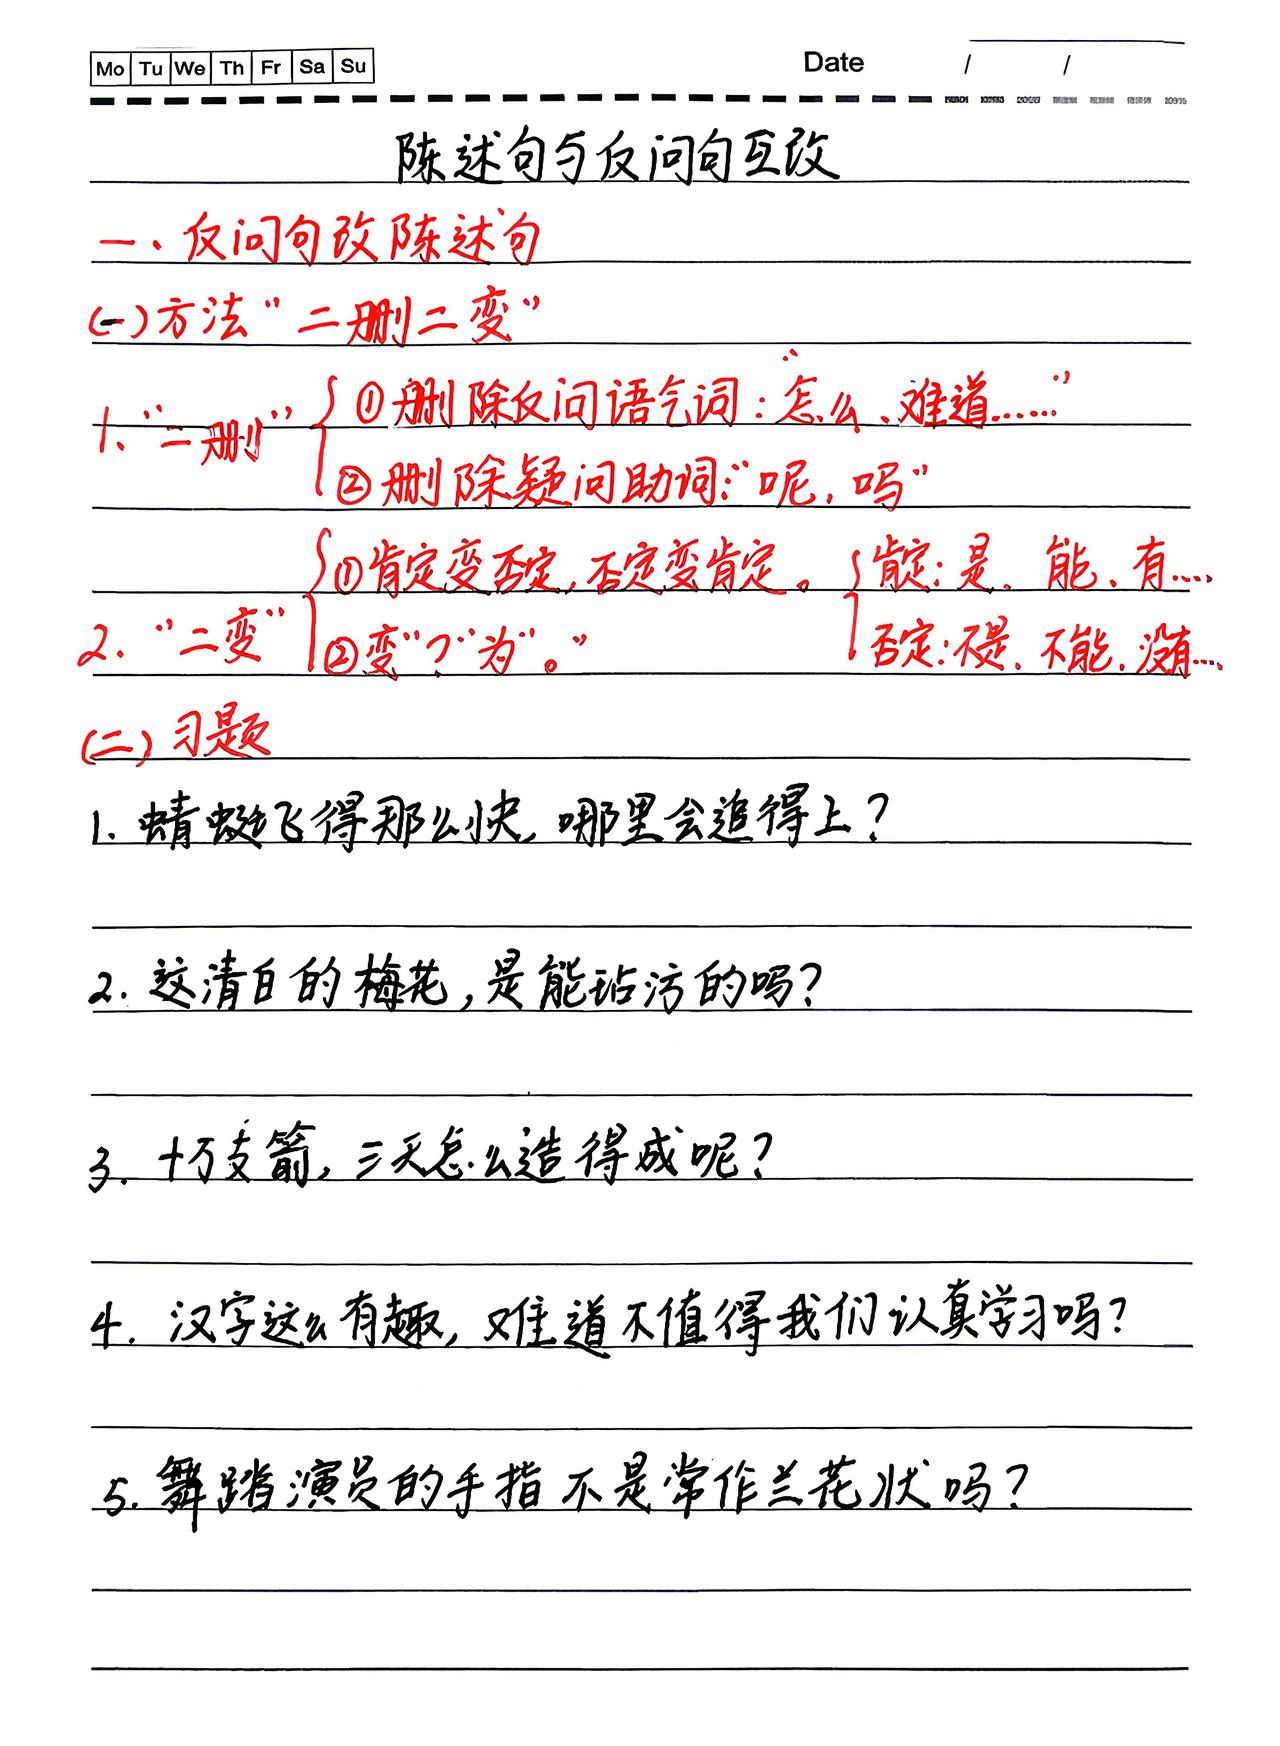 Mo Tu We Th Fr Sa Su Date / /
陈述句与反问句互改
一、反问句改陈述句
(一)方法“二删二变”
1.“二删” ①删除反问语气词:“怎么、难道……”
②删除疑问助词:“呢,吗”
2.“二变” ①肯定变否定,否定变肯定。 肯定:是、能、有……
②变“?”为“。” 否定:不是、不能、没有……
(二)习题
1.蜻蜓飞得那么快,哪里会追得上?
2.这清白的梅花,是能玷污的吗?
3.十万支箭,三天怎么造得成呢?
4.汉字这么有趣,难道不值得我们认真学习吗?
5.舞蹈演员的手指不是常作兰花状吗?